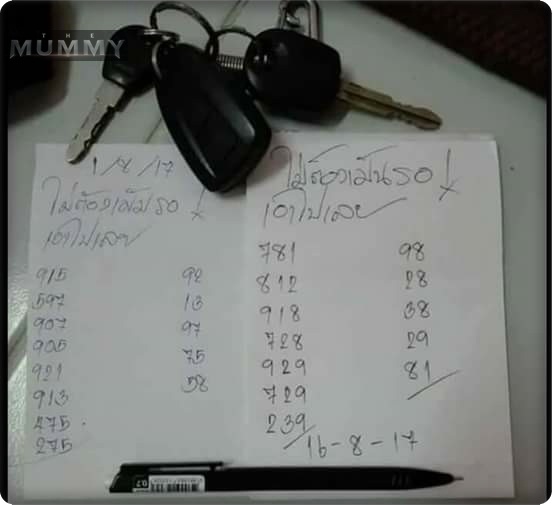 THE
MUMMY
1/8/17
ไม่ต้องเม้นรอ
เอาไปเลย
915 92
597 13
907 97
905 75
921 58
913
475
275
ไม่ต้องเม้นรอ
เอาไปเลย
781 98
812 28
918 38
728 29
929 81
729
239
16-8-17
0.7